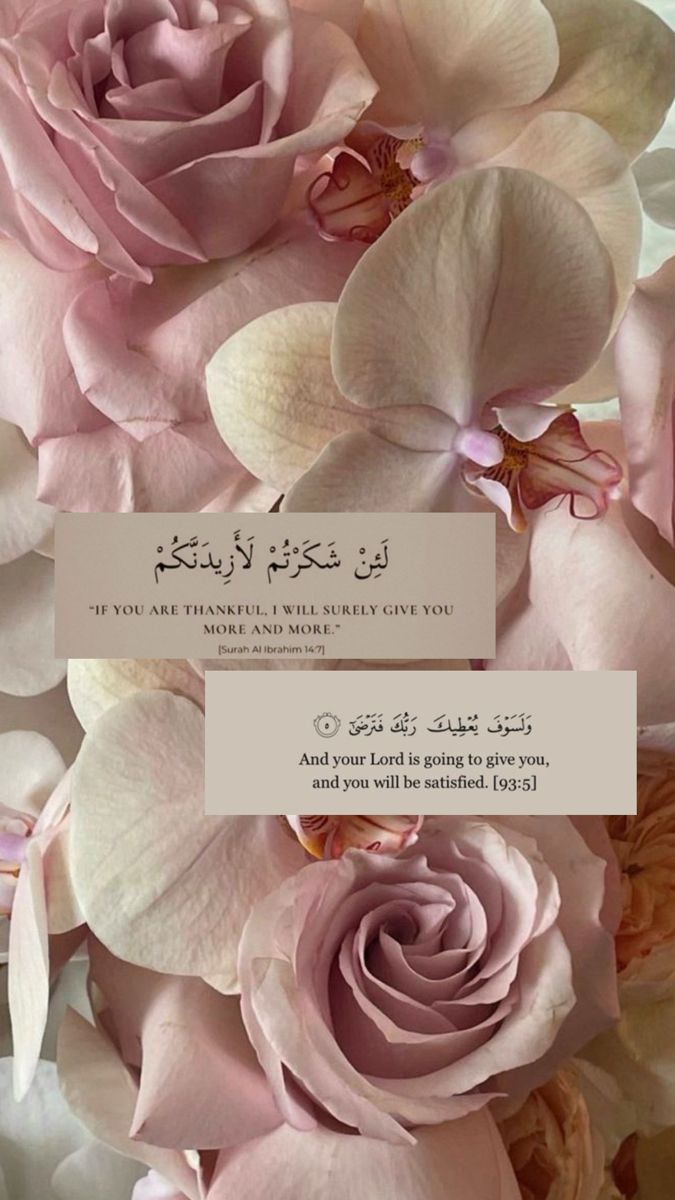 لَئِنْ شَكَرْتُمْ لَأَزِيدَنَّكُمْ
“IF YOU ARE THANKFUL, I WILL SURELY GIVE YOU
MORE AND MORE.”
[Surah Al Ibrahim 14:7]
وَلَسَوْفَ يُعْطِيكَ رَبُّكَ فَتَرْضَىٰٓ ٥
And your Lord is going to give you,
and you will be satisfied. [93:5]